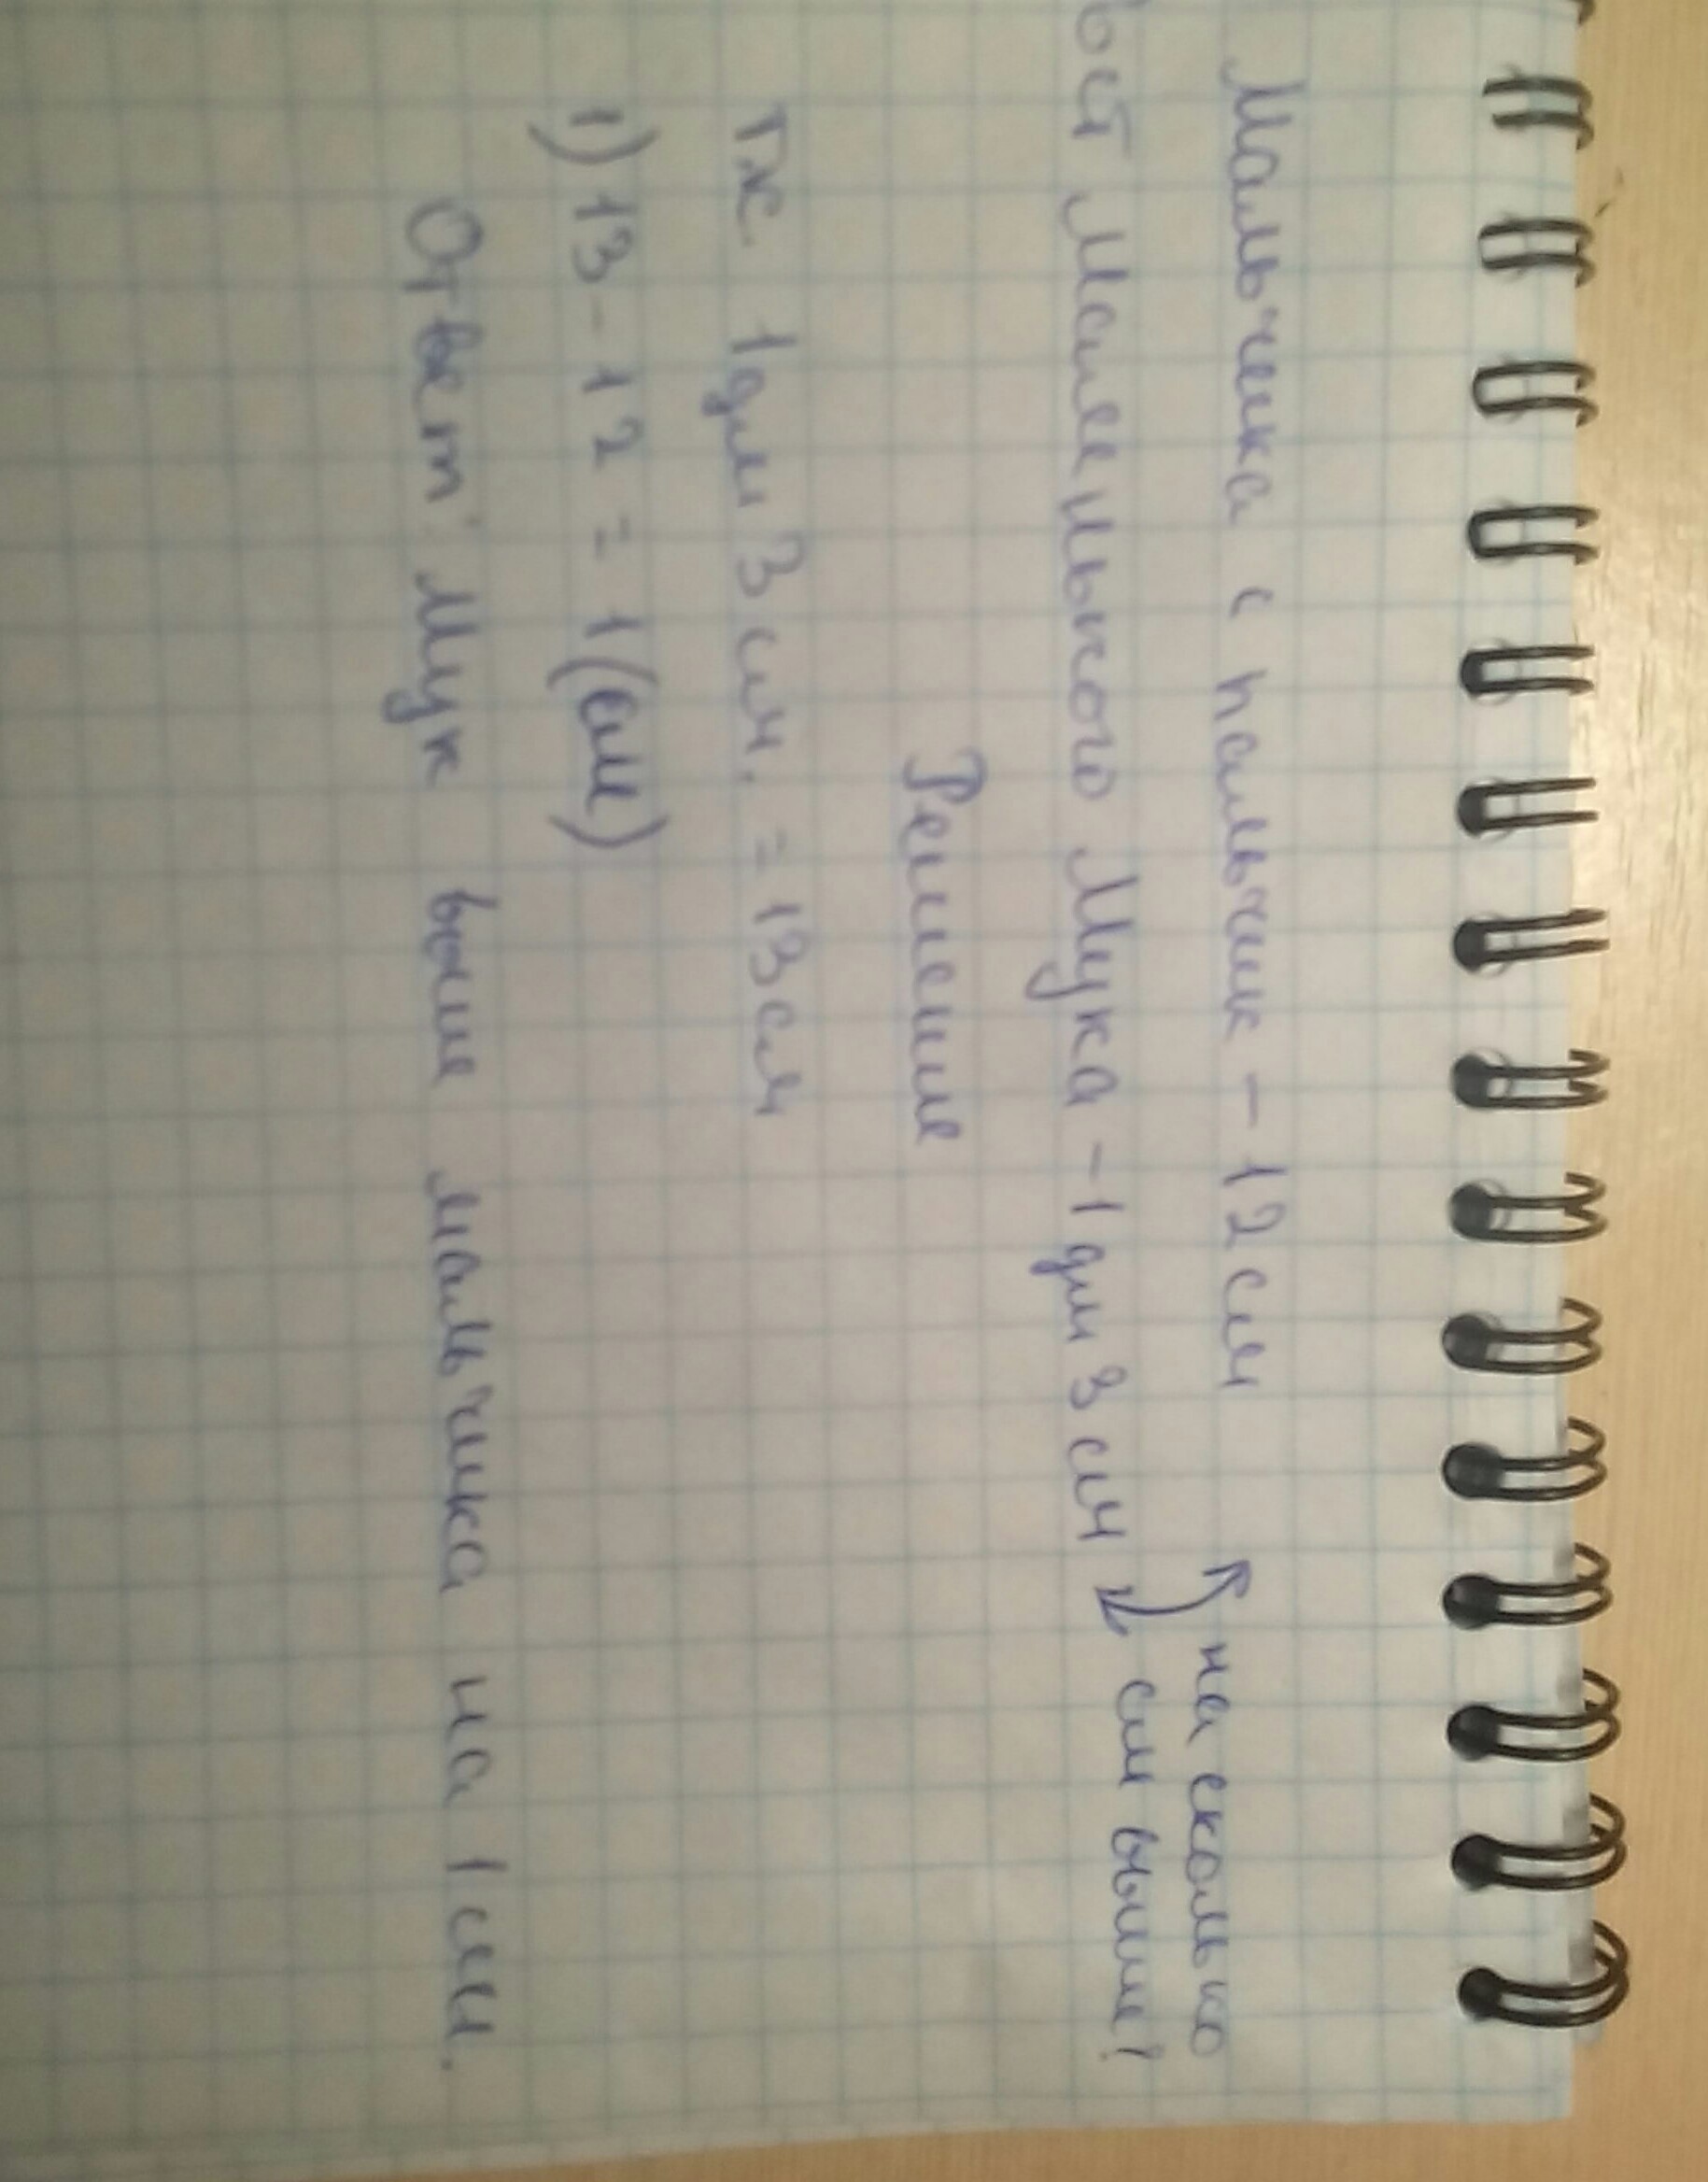 Мальчика с пальчик - 12 см
на сколько
ост Маленького Мука - 1 дм 3 см
см выше?
Решение
тк 1дм 3 см. = 13 см
1) 13 - 12 = 1 (см)
Ответ: Мук выше мальчика на 1 см.